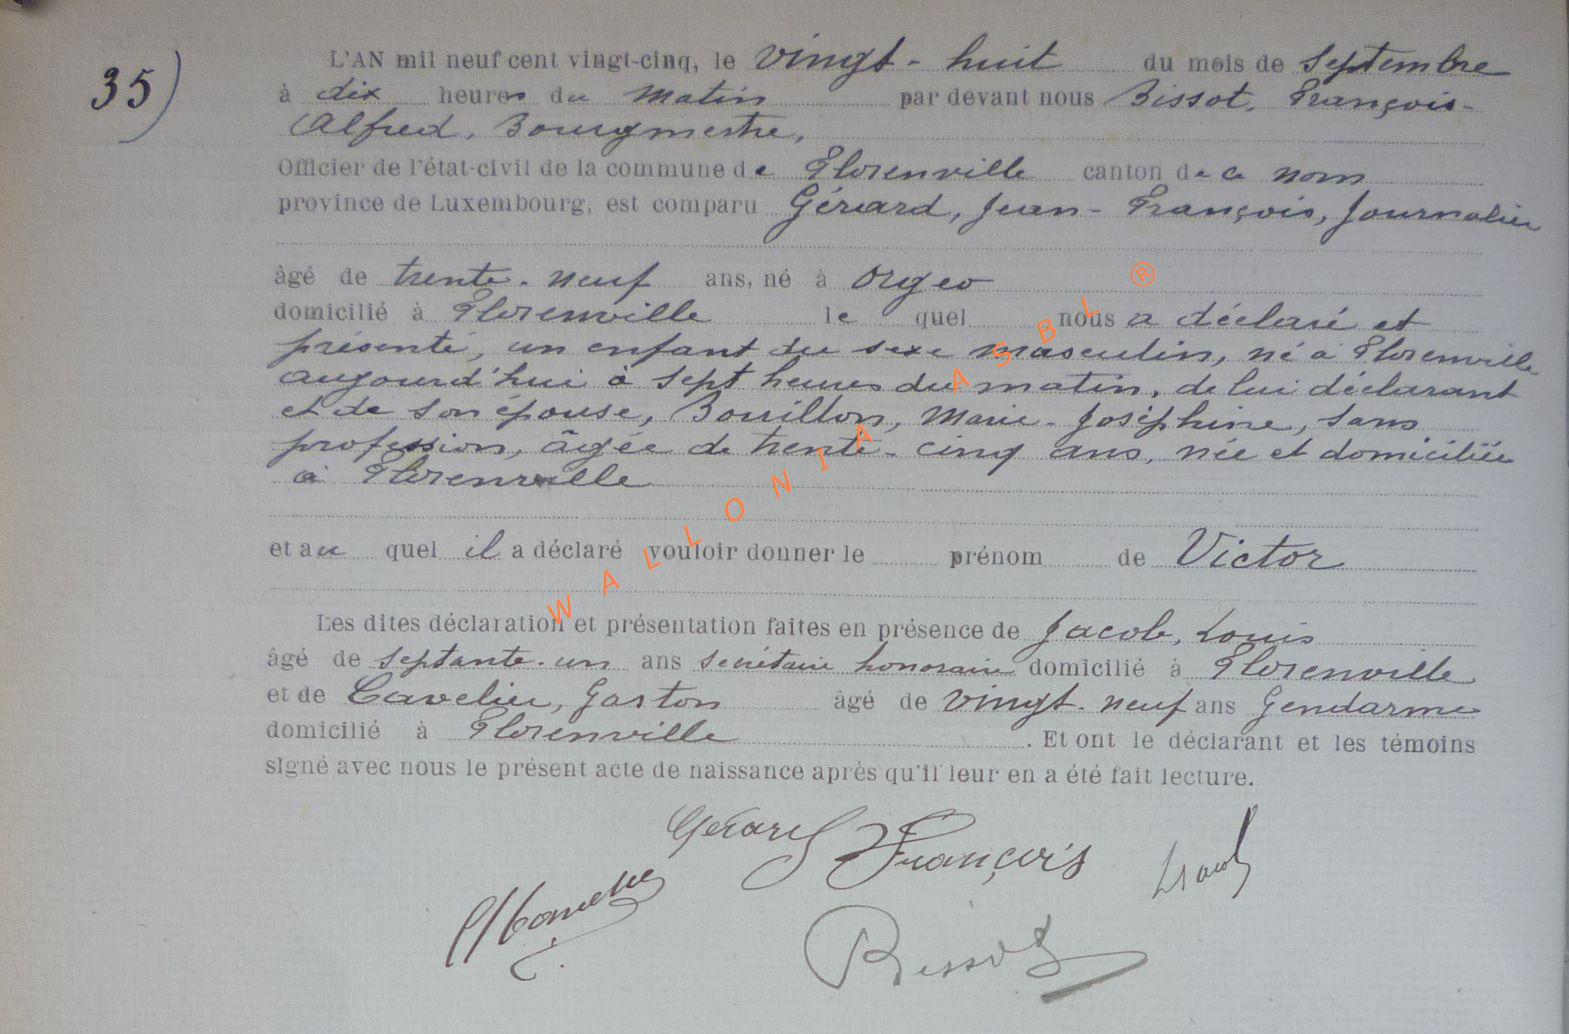 35)
L'AN mil neuf cent vingt-cinq, le vingt-huit du mois de Septembre
à dix heures du matin par devant nous Bissot, François-
Alfred, Bourgmestre,
Officier de l'état-civil de la commune de Florenville canton de ce nom
province de Luxembourg, est comparu Gérard, Jean-François, Journalier
âgé de trente-neuf ans, né à Orgeo
domicilié à Florenville le quel nous a déclaré et
présenté, un enfant du sexe masculin, né à Florenville
aujourd'hui à sept heures du matin, de lui déclarant
et de son épouse, Bourillon, Marie-Joséphine, sans
profession, âgée de trente-cinq ans, née et domiciliée
à Florenville
et au quel il a déclaré vouloir donner le prénom de Victor
Les dites déclaration et présentation faites en présence de Jacob, Louis
âgé de septante-un ans secrétaire honoraire domicilié à Florenville
et de Cavelier, Gaston âgé de vingt-neuf ans Gendarme
domicilié à Florenville . Et ont le déclarant et les témoins
signé avec nous le présent acte de naissance après qu'il leur en a été fait lecture.
Gérard François
Bissot
WALLONIA ASBL ®